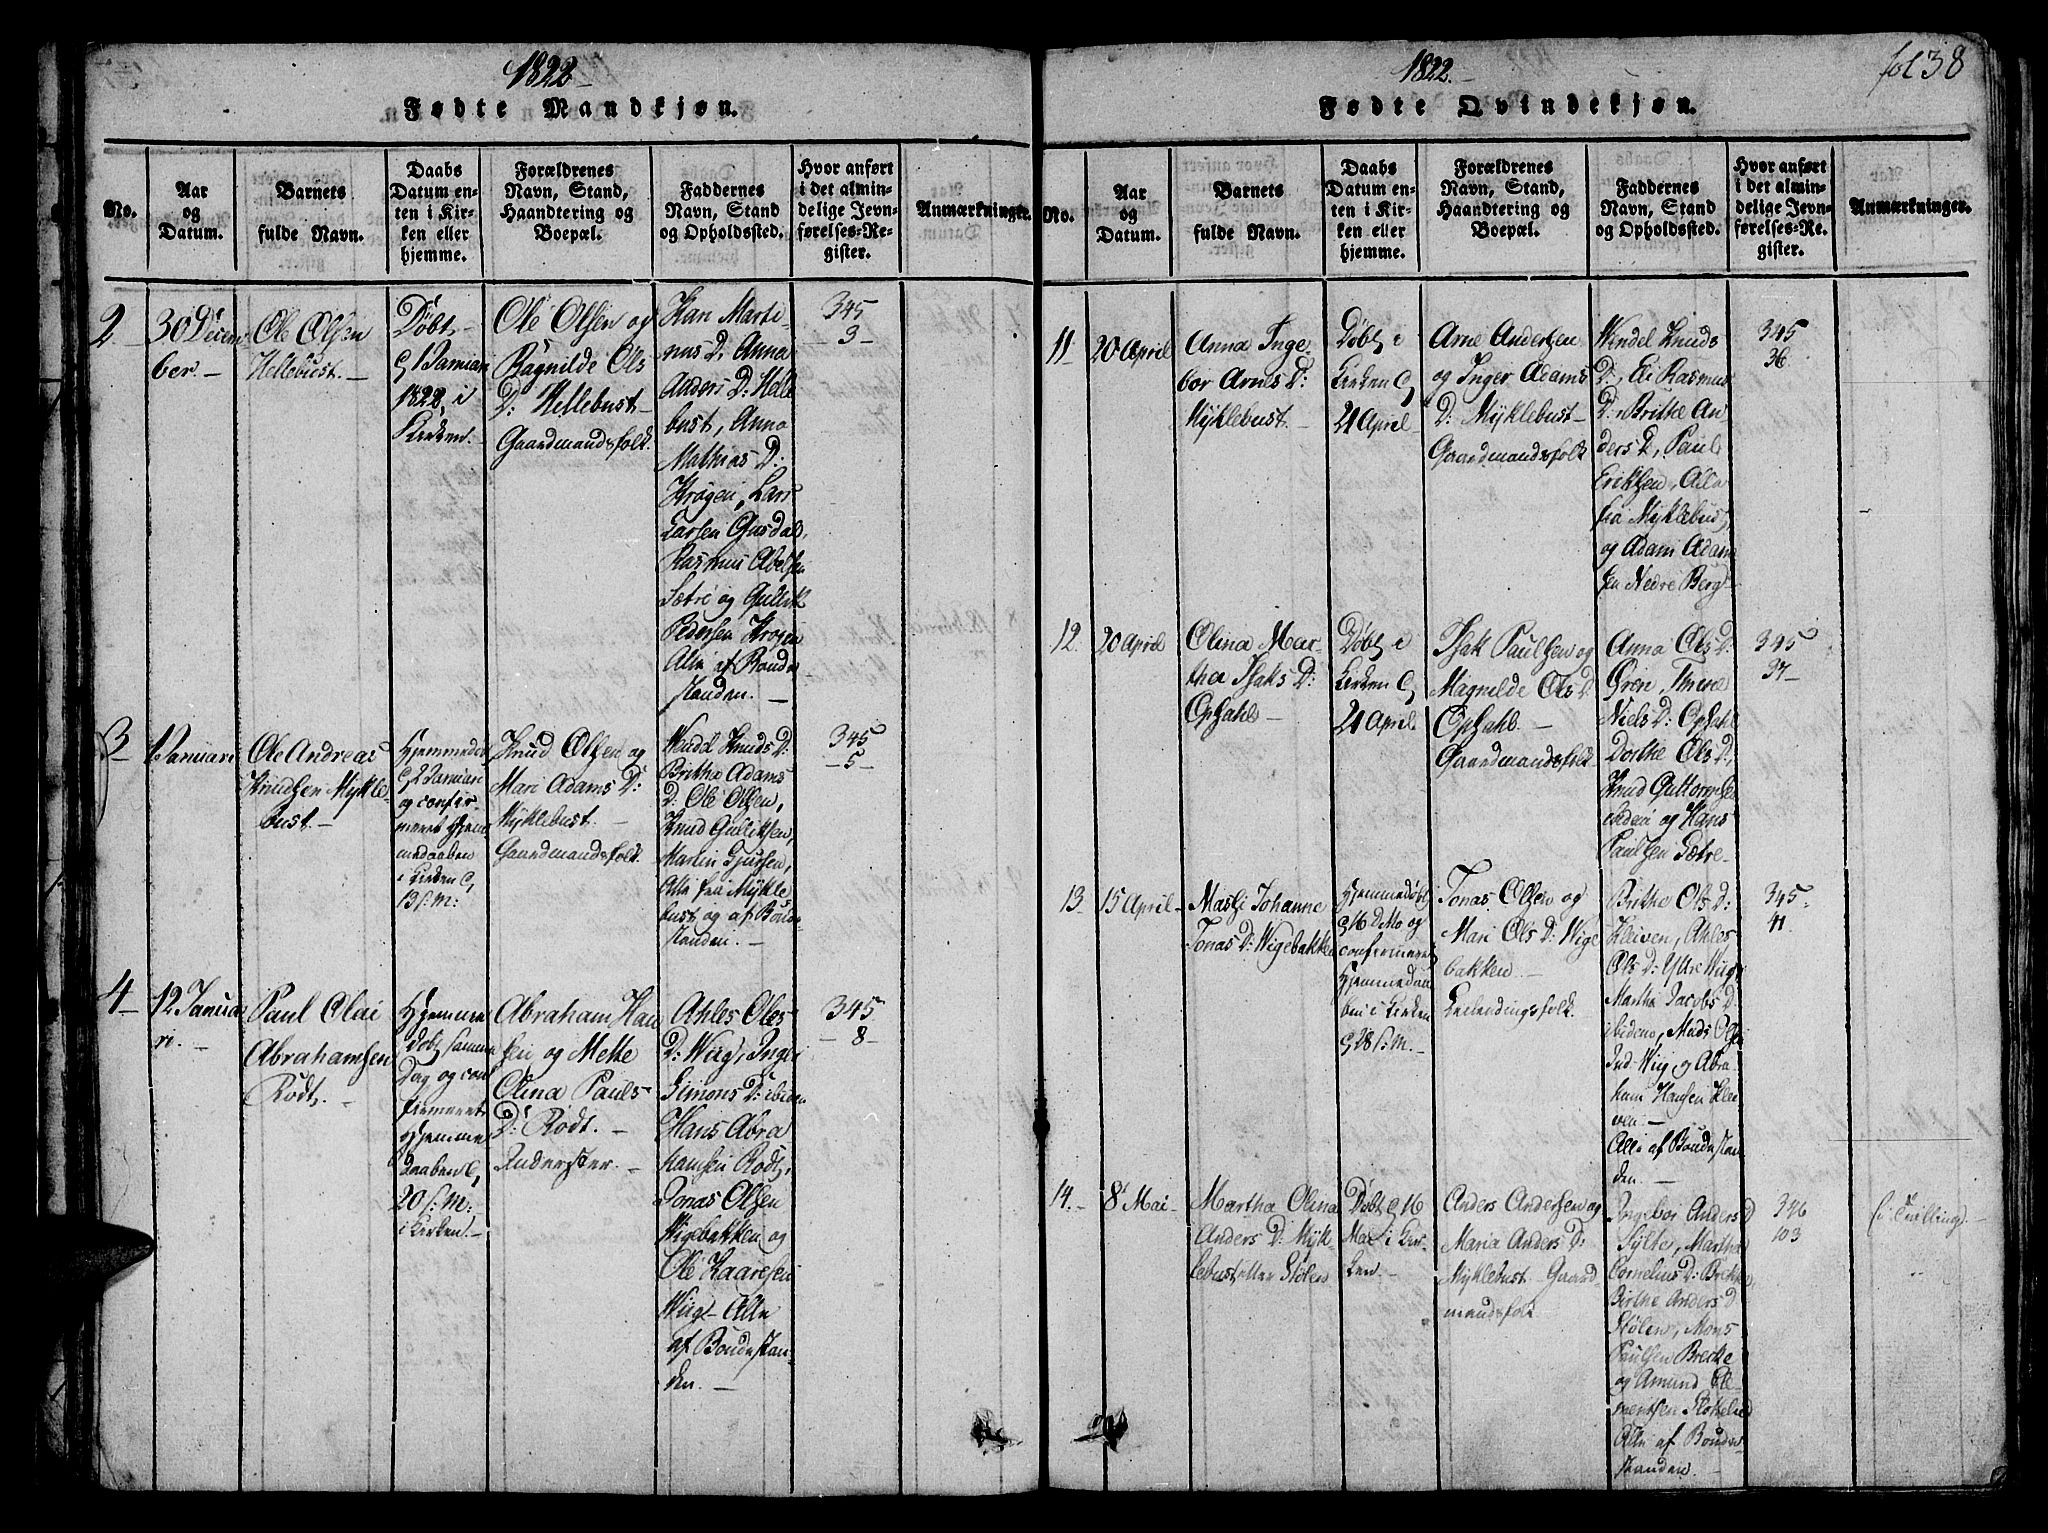 1822
Fødte Mandkjøn.
No.
Aar
og
Datum.
Barnets
fulde Navn.
Daabs
Datum en-
ten i Kir-
ken eller
hjemme.
Forældrenes
Navn, Stand,
Haandtering og
Boepæl.
Faddernes
Navn, Stand
og Opholdssted.
Hvor anført
i det almin-
delige Jevn-
førelses-Re-
gister.
Anmærkninger.
2
30 Decem
ber.
Ole Olsen
Hellebust.
Døbt
1822, i
Kirken.
Ole Olsen og
Ragnilde Ols
D: Hellebust
Gaardmandsfolk.
Mart
nus D: Anna
Anders D: Helle
bust, Anna
Mathias D:
Krøgen, Lars
Larsen
Rasmus Abelsen
Sætre og Gullik
Pedersen Krøgen
Alle af Bonde
standen.
345
3
3
1 Januari
Ole Andreas
Knudsen Mykle-
bust.
Hjemmedøbt
2 Januari
og confir-
meret Hjem
medaaben
i Kirken
13 s. M:
Knud Olsen og
Mari Adams D:
Myklebust.
Gaardmandsfolk.
Knuds D:
Brithe Adams
D: Ole Olsen,
Knud Gulliksen,
Martin Gjursen,
Alle fra Mykle
bust og af Bonde
standen.
345
5
4
12 Janua
ri.
Paul Olai
Abrahamsen
Rødt.
Hjemme
døbt samme
Dag og con
firmeret
Hjemme
daaben
20 s. M:
i Kirken.
Abraham Han
sen og Mette
Olina Pauls
D: Rødt.
Ahles Oles
D: Wiig, Inger
Simons D: ibiden
Hans Abra
hamsen Rødt,
Jonas Olsen
Wigebakken og
Ole Kaaresen
Wiig. Alle
af Bondestan-
den.
345
8
1822.
fol 38
Fødte Qvindekjøn.
No.
Aar
og
Datum.
Barnets
fulde Navn.
Daabs
Datum en-
ten i Kir-
ken eller
hjemme.
Forældrenes
Navn, Stand,
Haandtering og
Boepæl.
Faddernes
Navn, Stand
og Opholdssted.
Hvor anført
i det almin-
delige Jevn-
førelses-Re-
gister.
Anmærkninger.
11
20 April
Anna Inge-
bor Arnes D:
Myklebust.
Døbt i
Kirken
21 April
Arne Andersen
og Inger Adams
D: Myklebust
Gaardmandsfolk
Knuds
D:, Eli Rasmus
D:, Britte An
ders D, Paul
Eriksen, Alle
fra Myklebust,
og Adam Adam
sen Nedre Berg
345
36
12.
20 April
Olina Mar-
tha Isaks D:
Opsahl
Døbt i
Kirken
21 April
Isak Paulsen og
Magnilde Ols D:
Opsahl.
Gaardmandsfolk
Anna Ols D:
Niels D: Opsahl
Dorthe Ols D:,
Knud Guttormsen
og Hans
Paulsen Sætre
345
37
13
15 April
Johanne
Jonas D: Wigebakken
Hjemmedøbt
16 d. Mo og
confirmeret
Hjemmedaa
ben i Kirken
28 s. M.
Jonas Olsen og
Mari Ols D: Wige
bakken.
Leilendingsfolk.
Brithe Ols D:
Kleiven, Ahles
Ols D: Ytre Wiig,
Martha Jacobs D.
ibidem, Mads Olsen
Ind Wiig, og Abra
ham Hansen Klei
ven
Alle af Bondestan
den.
345.
41
14.
8 Mai
Martha Olina
Anders D: Myk-
lebust eller Stølen
Døbt 16
Mai i Kir-
ken.
Anders Andersen og
Maria Anders D:
Myklebust. Gaard
mandsfolk
Ingebor Anders D
Sylte, Martha
Cornelius D: Brekke,
Birthe Anders D
Stølen, Mons
Paulsen Brekke
og Amund Cle-
mentsen
Alle af Bonde
standen.
346
103
(: Tvilling:)